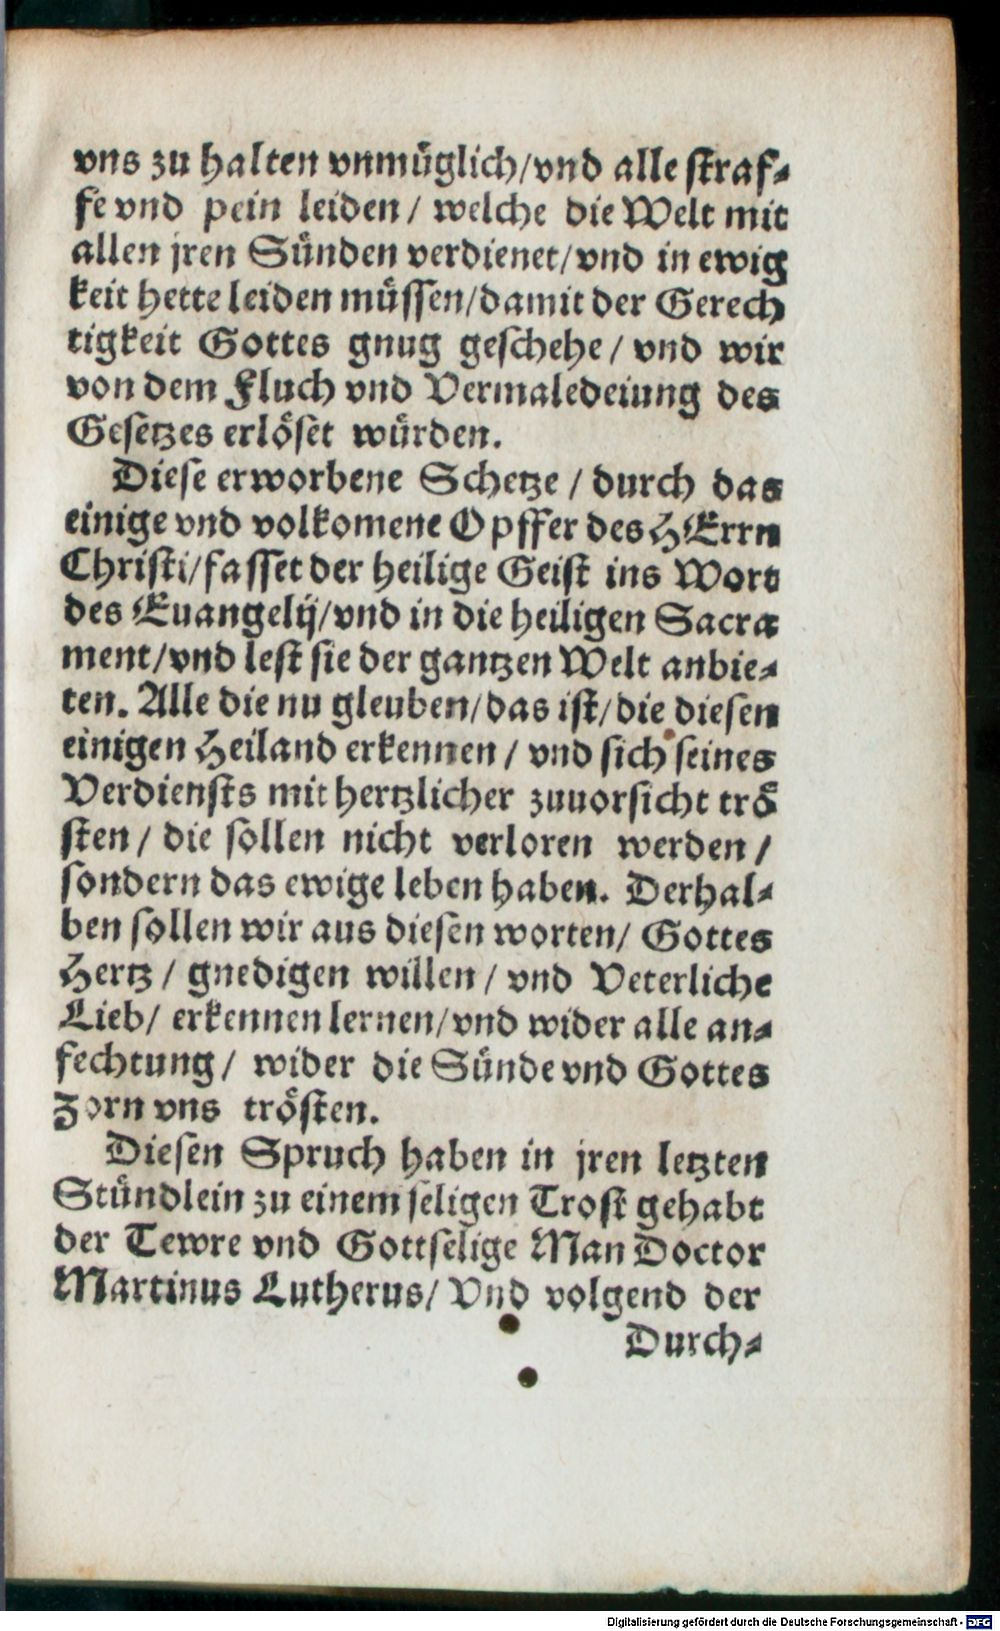 vns zu halten vnmüglich/vnd alle straf-
fe vnd pein leiden/ welche die Welt mit
allen jren Sünden verdienet/vnd in ewig
keit hette leiden müssen/damit der Gerech
tigkeit Gottes gnug geschehe/ vnd wir
von dem Fluch vnd Vermaledeiung des
Gesetzes erlöset würden.
Diese erworbene Schetze/ durch das
einige vnd volkomene Opffer des HErrn
Christi/fasset der heilige Geist ins Wort
des Euangelij/vnd in die heiligen Sacra
ment/vnd lest sie der gantzen Welt anbie-
ten. Alle die nu gleuben/das ist/die diesen
einigen Heiland erkennen/ vnd sich seines
Verdiensts mit hertzlicher zuuorsicht trö
sten/ die sollen nicht verloren werden/
sondern das ewige leben haben. Derhal-
ben sollen wir aus diesen worten/ Gottes
Hertz/ gnedigen willen/ vnd Veterliche
Lieb/ erkennen lernen/vnd wider alle an-
fechtung/ wider die Sünde vnd Gottes
Zorn vns trösten.
Diesen Spruch haben in jren letzten
Stündlein zu einem seligen Trost gehabt
der Tewre vnd Gottselige Man Doctor
Martinus Lutherus/ Vnd volgend der
Durch-
Digitalisierung gefördert durch die Deutsche Forschungsgemeinschaft - DFG